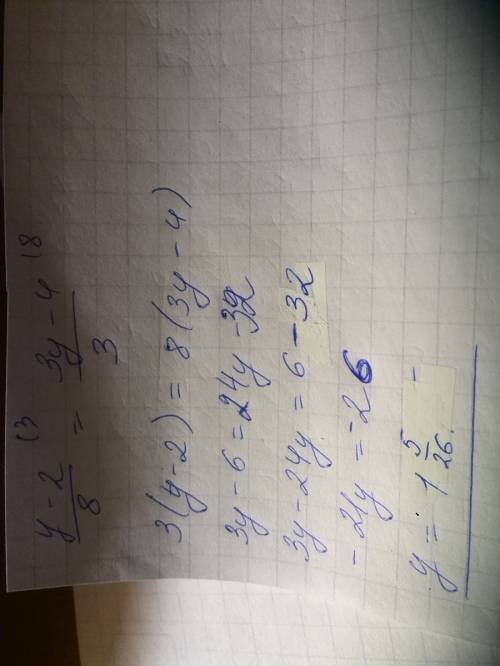 y-2/8 (3 = 3y-4/3 (8
3(y-2) = 8(3y-4)
3y-6=24y-32
3y-24y=6-32
-21y=-26
y = 1 5/26.